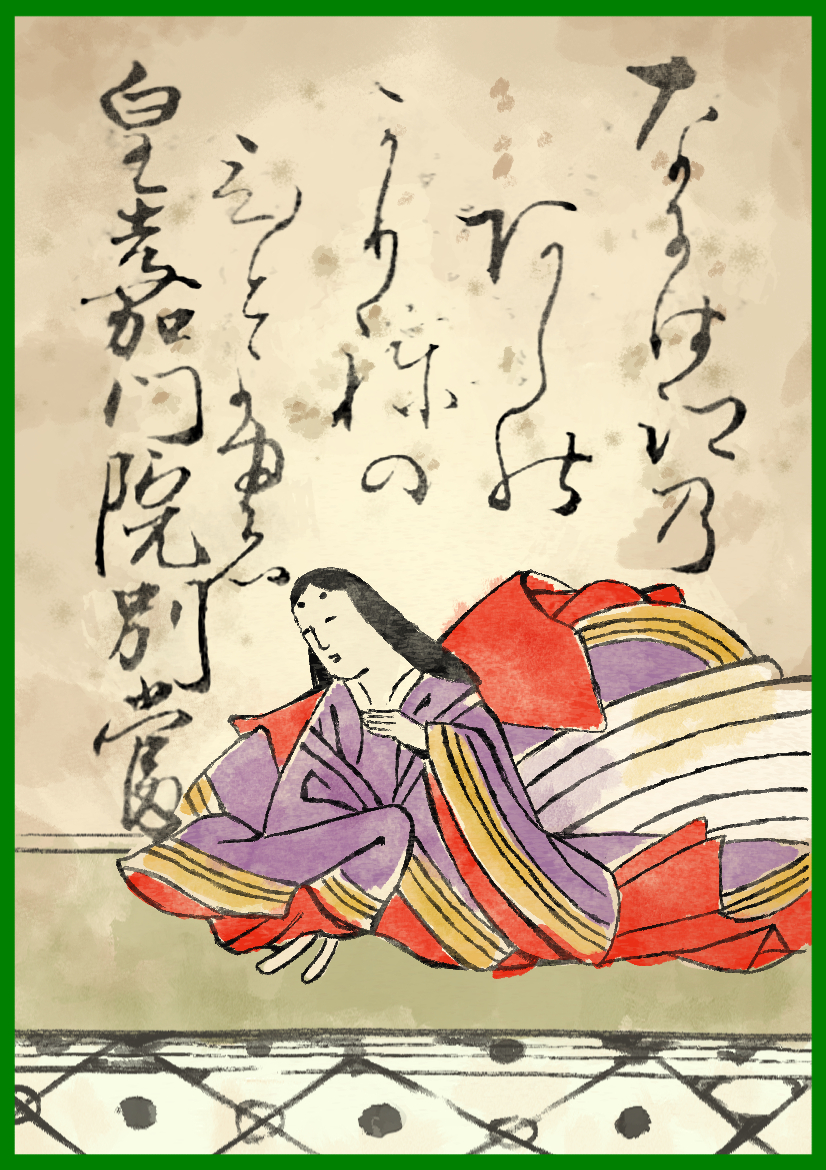 なには江乃
あしの
かり祢の
ひとよゆゑ
皇嘉門院別當